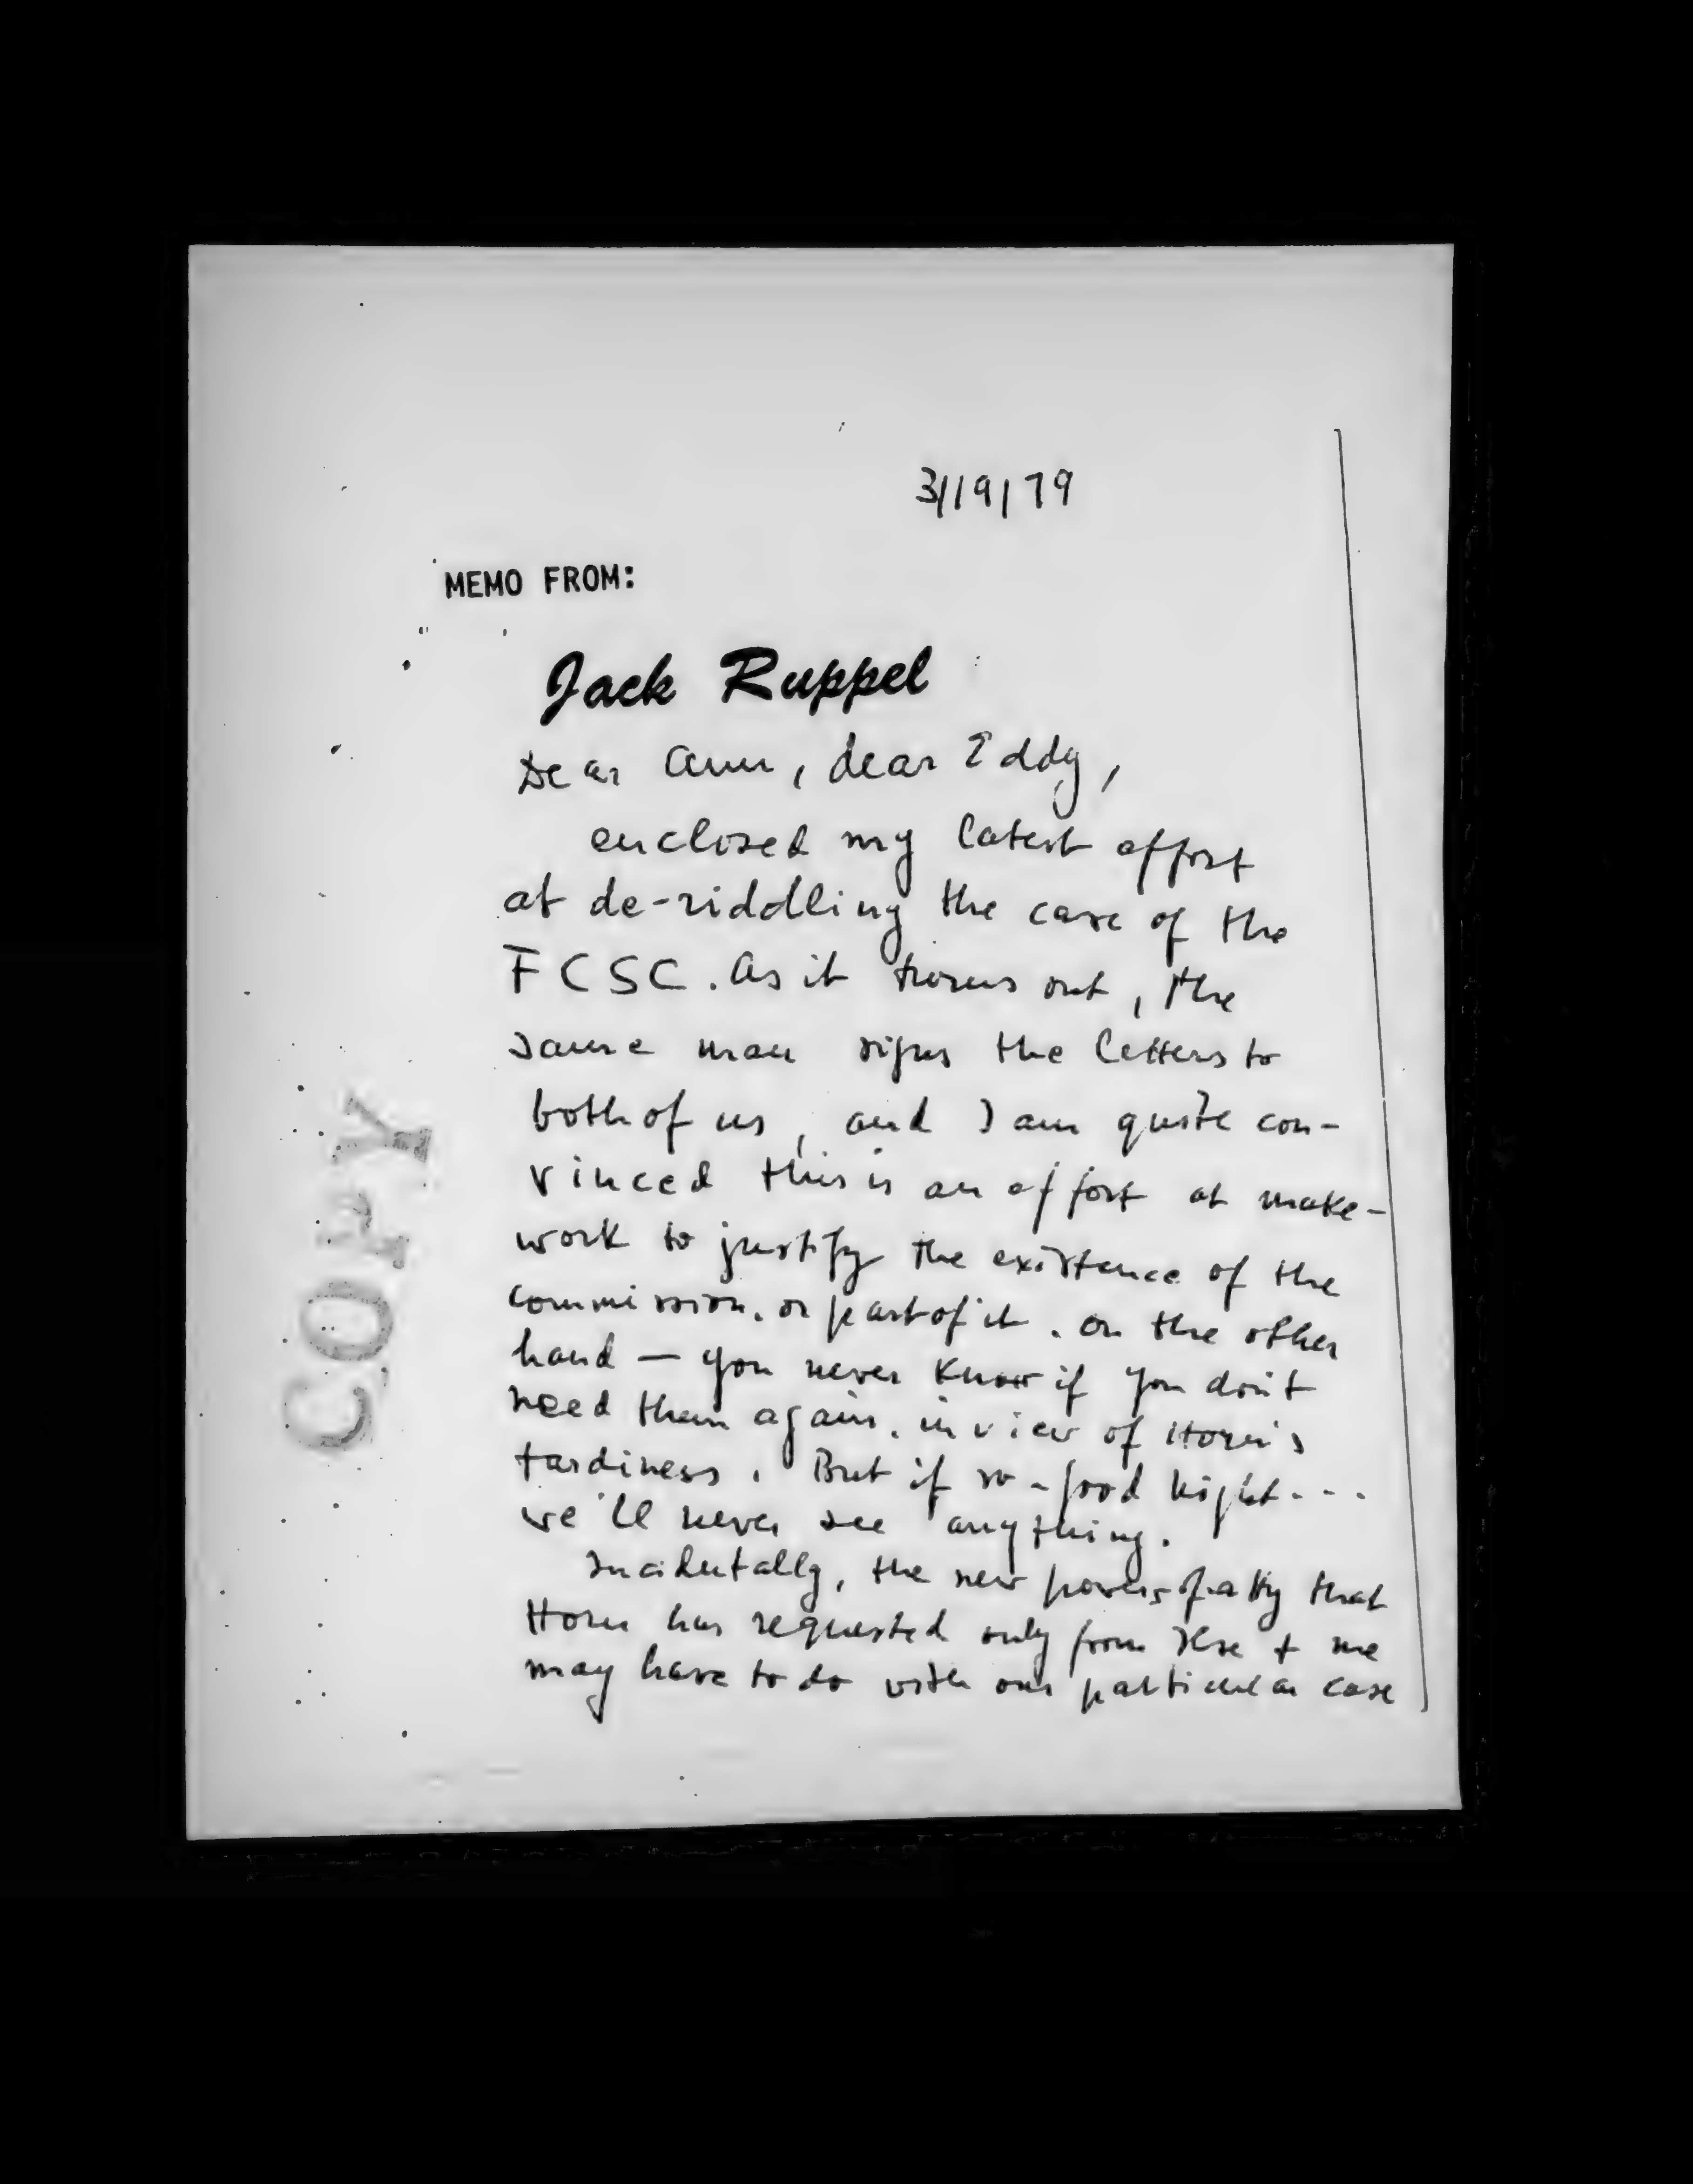 3/19/79
MEMO FROM:
Jack Ruppel
Dear Ann, dear Eddy,
enclosed my latest effort
at de-riddling the case of the
FCSC. As it turns out, the
same man signs the letters to
both of us, and I am quite con-
vinced this is an effort at make-
work to justify the existence of the
commission, or part of it. On the other
hand — you never know if you don't
need them again, in view of Horn's
tardiness. But if so - good night...
we'll never see anything.
Incidentally, the new powers of atty that
Horn has requested only from Ilse + me
may have to do with our particular case
COPY